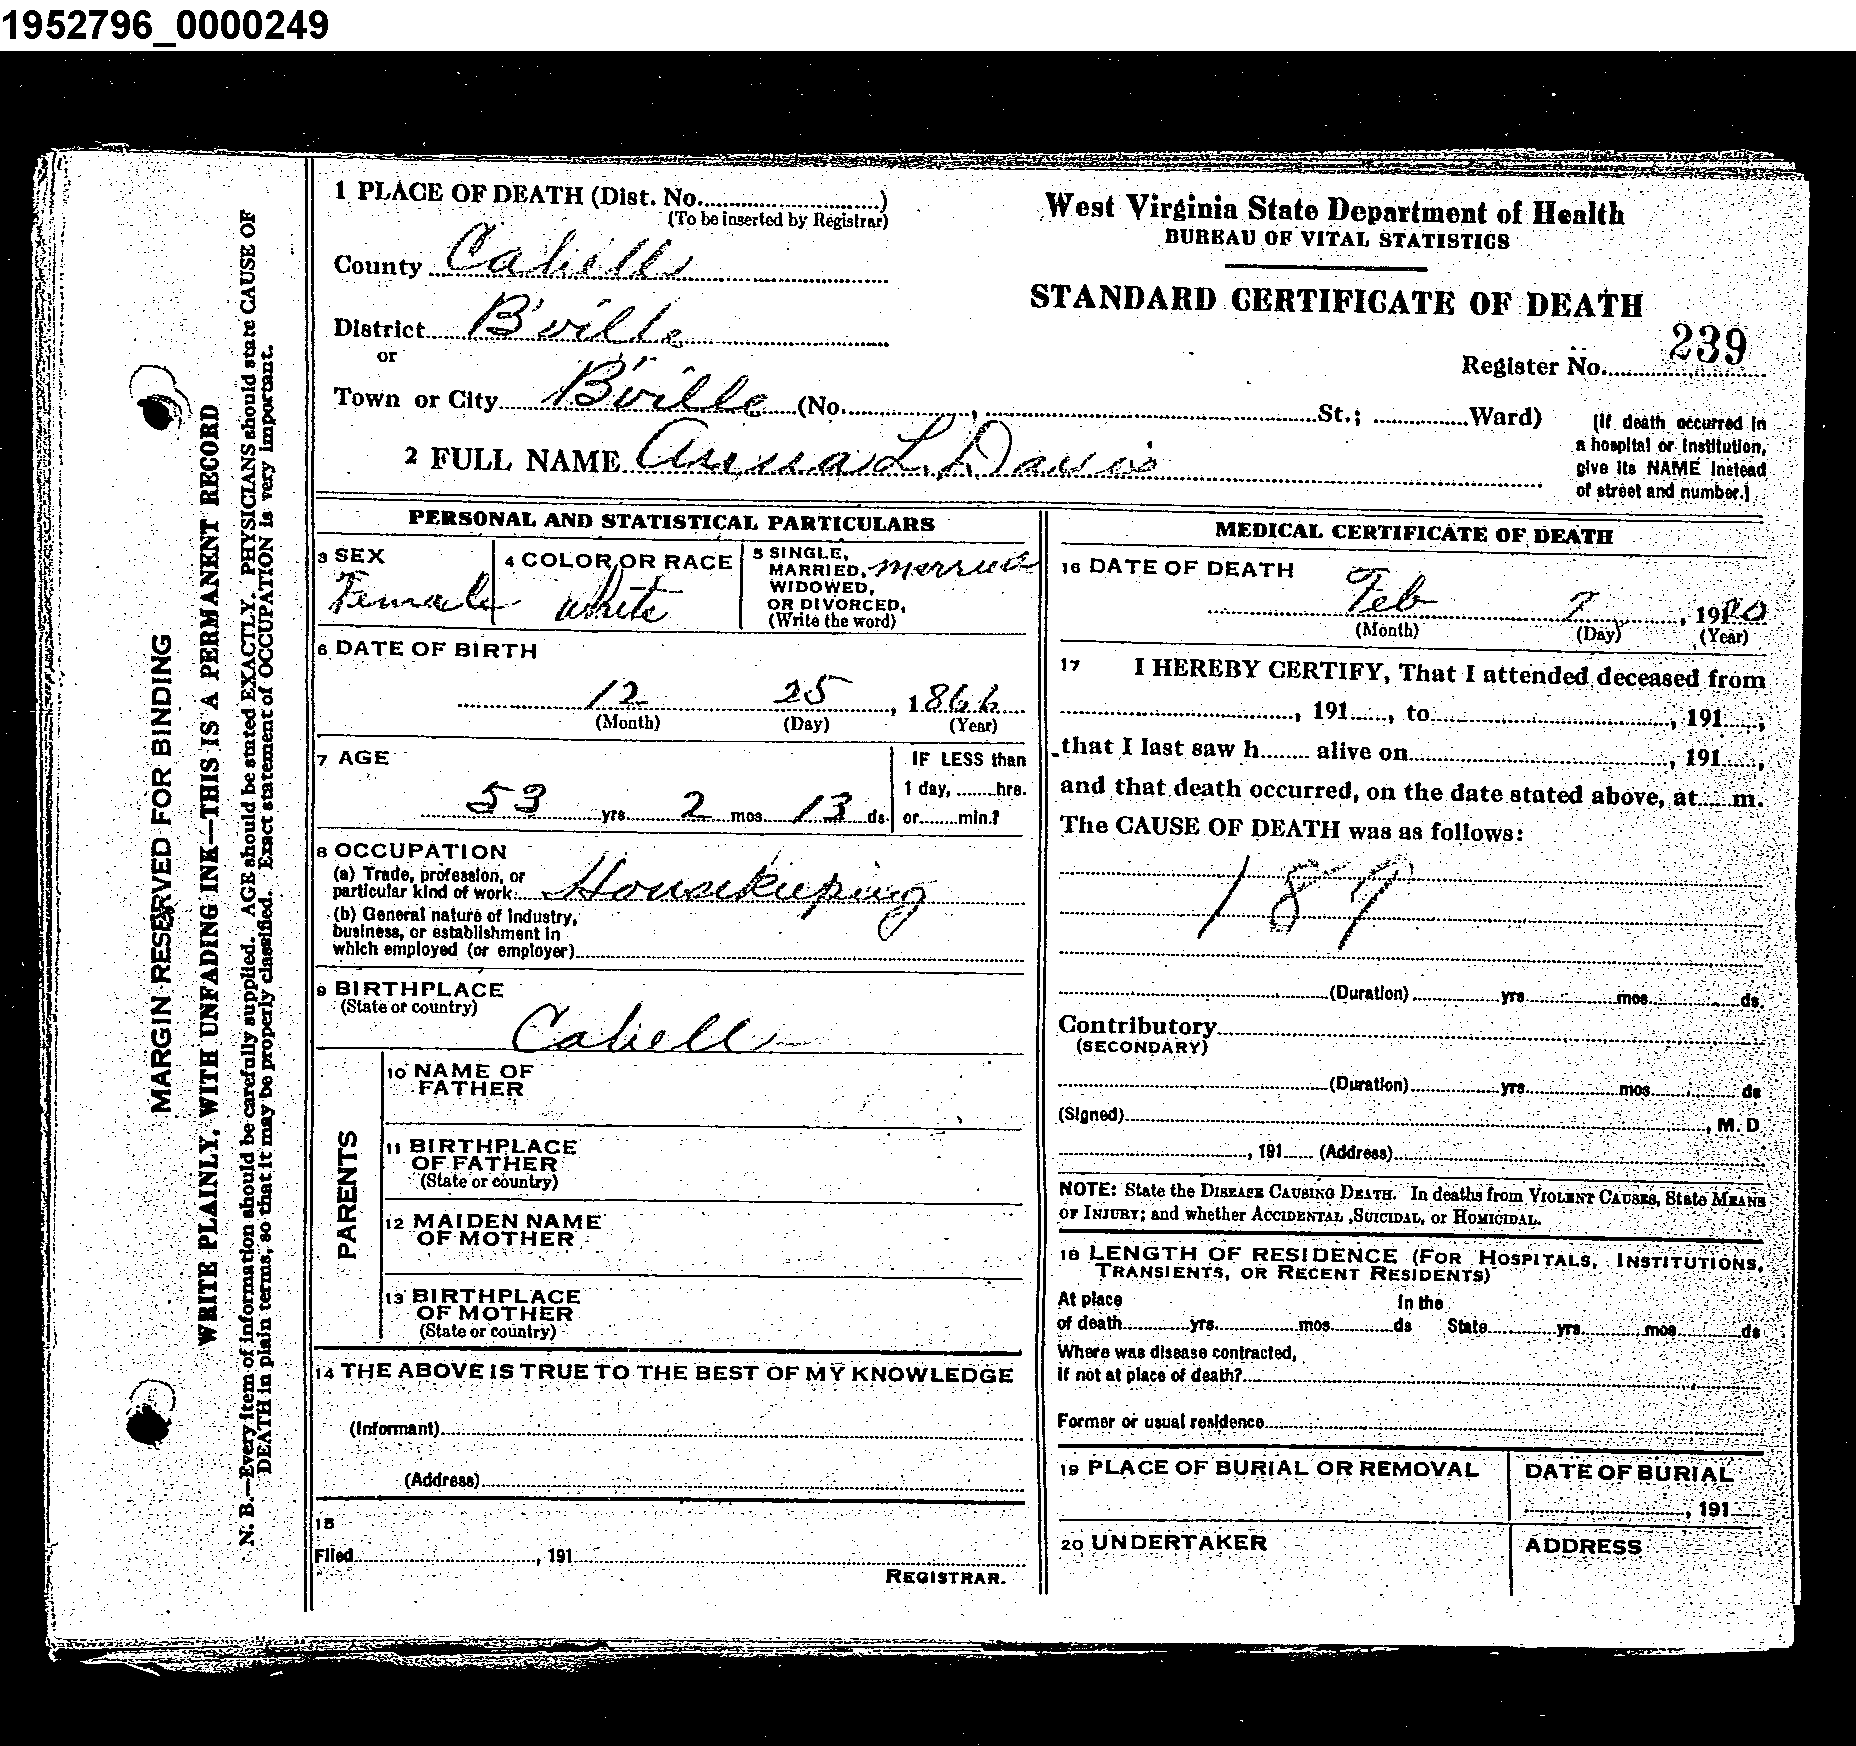 1952796_0000249
1 PLACE OF DEATH (Dist. No..........)
(To be inserted by Registrar)
County Cabell
District B'ville
or
Town or City B'ville (No. .........., .......... St.; .......... Ward)
2 FULL NAME Anna L. Davis
West Virginia State Department of Health
BUREAU OF VITAL STATISTICS
STANDARD CERTIFICATE OF DEATH
Register No. 239
(If death occurred in
a hospital or institution,
give its NAME instead
of street and number.)
MARGIN RESERVED FOR BINDING
WRITE PLAINLY, WITH UNFADING INK—THIS IS A PERMANENT RECORD
N. B.—Every item of information should be carefully supplied. AGE should be stated EXACTLY. PHYSICIANS should state CAUSE OF
DEATH in plain terms, so that it may be properly classified. Exact statement of OCCUPATION is very important.
PERSONAL AND STATISTICAL PARTICULARS
3 SEX
Female
4 COLOR OR RACE
White
5 SINGLE,
MARRIED,
WIDOWED,
OR DIVORCED,
(Write the word)
married
6 DATE OF BIRTH
12 25, 1866
(Month) (Day) (Year)
7 AGE
53 yrs. 2 mos. 13 ds.
IF LESS than
1 day, ........hrs.
or........min.?
8 OCCUPATION
(a) Trade, profession, or
particular kind of work Housekeeping
(b) General nature of Industry,
business, or establishment in
which employed (or employer)
9 BIRTHPLACE
(State or country)
Cabell
PARENTS
10 NAME OF
FATHER
11 BIRTHPLACE
OF FATHER
(State or country)
12 MAIDEN NAME
OF MOTHER
13 BIRTHPLACE
OF MOTHER
(State or country)
14 THE ABOVE IS TRUE TO THE BEST OF MY KNOWLEDGE
(Informant)
(Address)
15
Filed.........., 191
REGISTRAR.
MEDICAL CERTIFICATE OF DEATH
16 DATE OF DEATH
Feb 7, 1920
(Month) (Day) (Year)
17 I HEREBY CERTIFY, That I attended deceased from
.........., 191......, to.........., 191......,
that I last saw h........ alive on.........., 191......,
and that death occurred, on the date stated above, at......m.
The CAUSE OF DEATH was as follows:
189
(Duration)..........yrs..........mos..........ds.
Contributory
(SECONDARY)
(Duration)..........yrs..........mos..........ds
(Signed).........., M. D
.........., 191...... (Address)
NOTE: State the DISEASE CAUSING DEATH. In deaths from VIOLENT CAUSES, State MEANS
OF INJURY; and whether ACCIDENTAL, SUICIDAL, or HOMICIDAL.
18 LENGTH OF RESIDENCE (FOR HOSPITALS, INSTITUTIONS,
TRANSIENTS, OR RECENT RESIDENTS)
At place In the
of death..........yrs..........mos..........ds State..........yrs..........mos..........ds.
Where was disease contracted,
If not at place of death?
Former or usual residence
19 PLACE OF BURIAL OR REMOVAL
DATE OF BURIAL
.........., 191
20 UNDERTAKER
ADDRESS